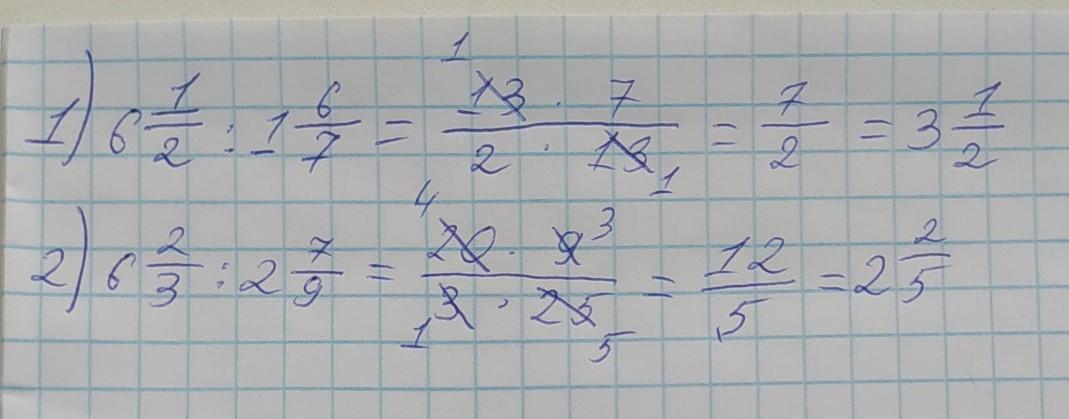 1) 6 1/2 : 1 6/7 = (13 · 7)/(2 · 13) = 7/2 = 3 1/2
2) 6 2/3 : 2 7/9 = (20 · 9)/(3 · 25) = 12/5 = 2 2/5